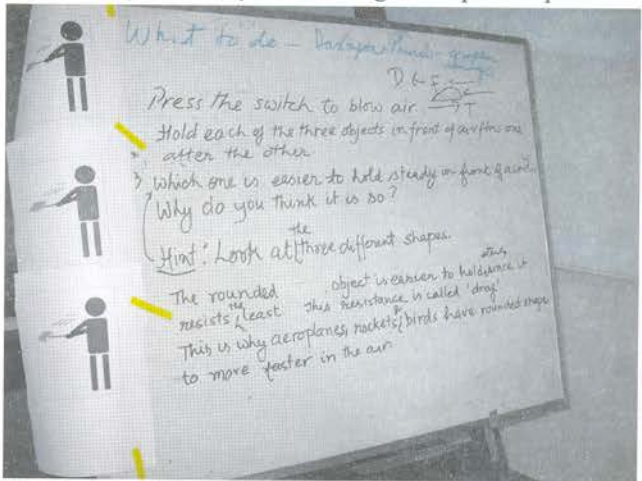 What to do –
D ← F ←
T
Press the switch to blow air.
Hold each of the three objects in front of airflow one
after the other.
Which one is easier to hold steady in front of wind.
Why do you think it is so?
Hint: Look at the three different shapes.
The rounded object is easier to hold since it
resists the least This resistance is called 'drag'
This is why aeroplanes, rockets & birds have rounded shape
to move faster in the air